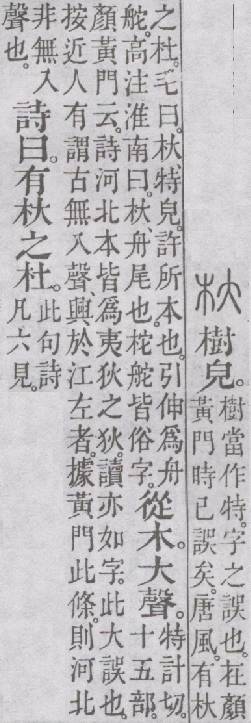 杕樹皃。樹當作特。字之誤也。在顏
黃門時已誤矣。唐風。有杕
之杜。毛曰。杕、特皃。許所本也。引伸爲舟
舵。高注淮南曰。杕、舟尾也。柁舵皆俗字。從木。大聲。特計切。
十五部。
顏黃門云。詩河北本皆爲夷狄之狄。讀亦如字。此大誤也。
按近人有謂古無入聲、興於江左者。據黃門此條。則河北
非無入
聲也。詩曰。有杕之杜。此句詩
凡六見。